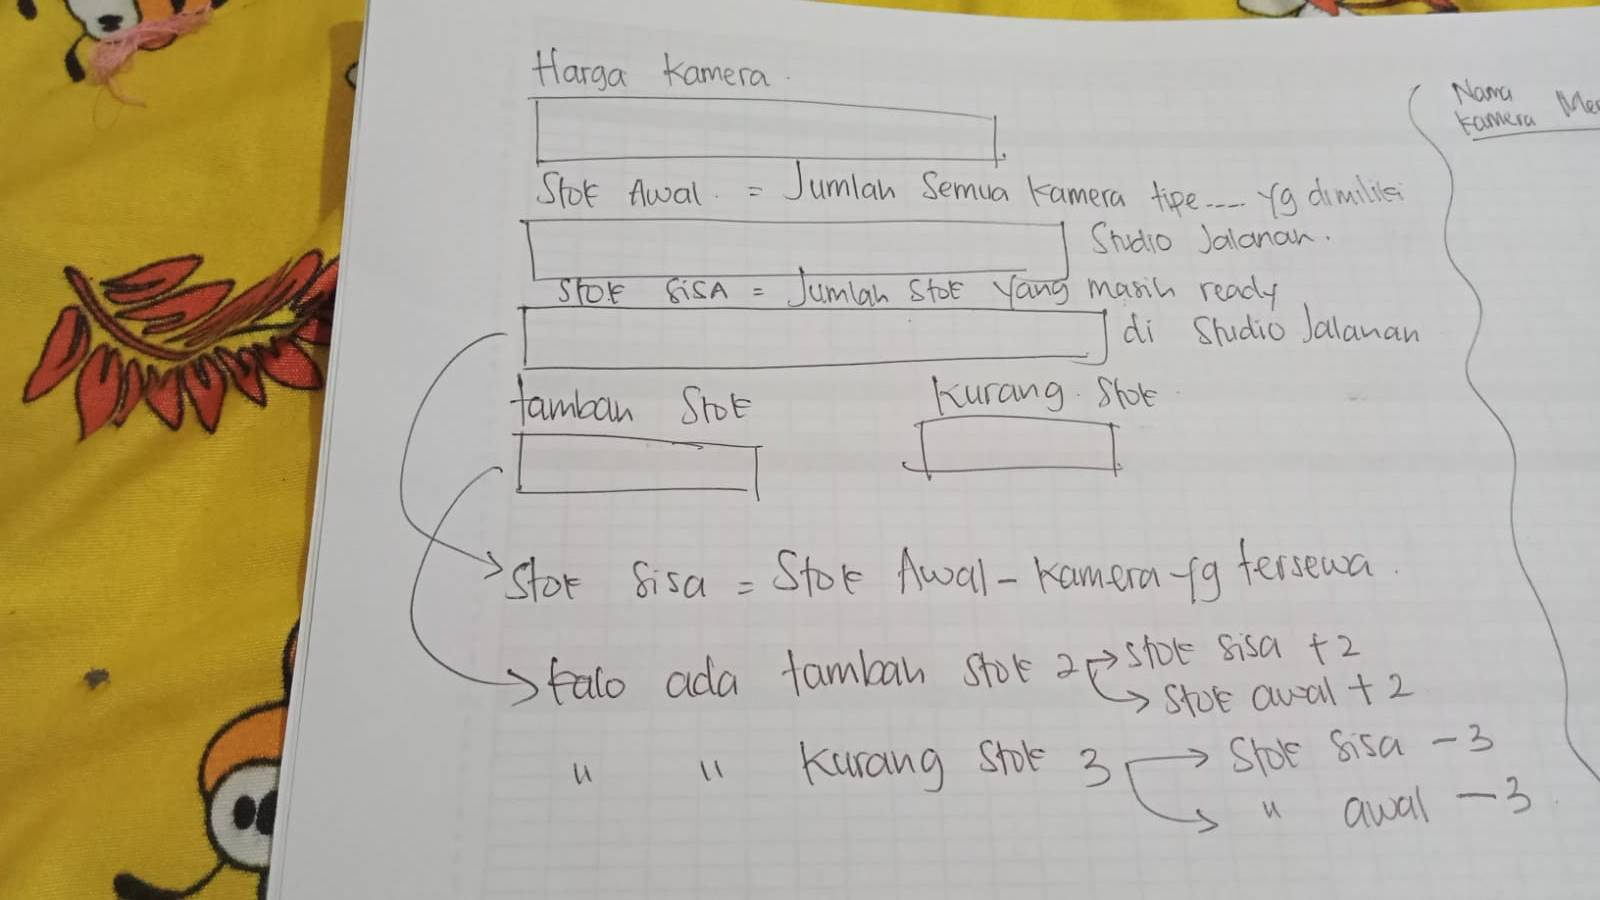 Harga Kamera.
Stok Awal. = Jumlah Semua Kamera tipe.... yg dimiliki
Studio Jalanan.
Stok SiSA = Jumlah Stok yang masih ready
di Studio Jalanan
tambah Stok
Kurang Stok
Stok Sisa = Stok Awal - Kamera yg tersewa.
kalo ada tambah stok 2 → stok sisa +2
→ stok awal +2
" " Kurang Stok 3 → Stok Sisa -3
→ " awal -3
Nama
Kamera